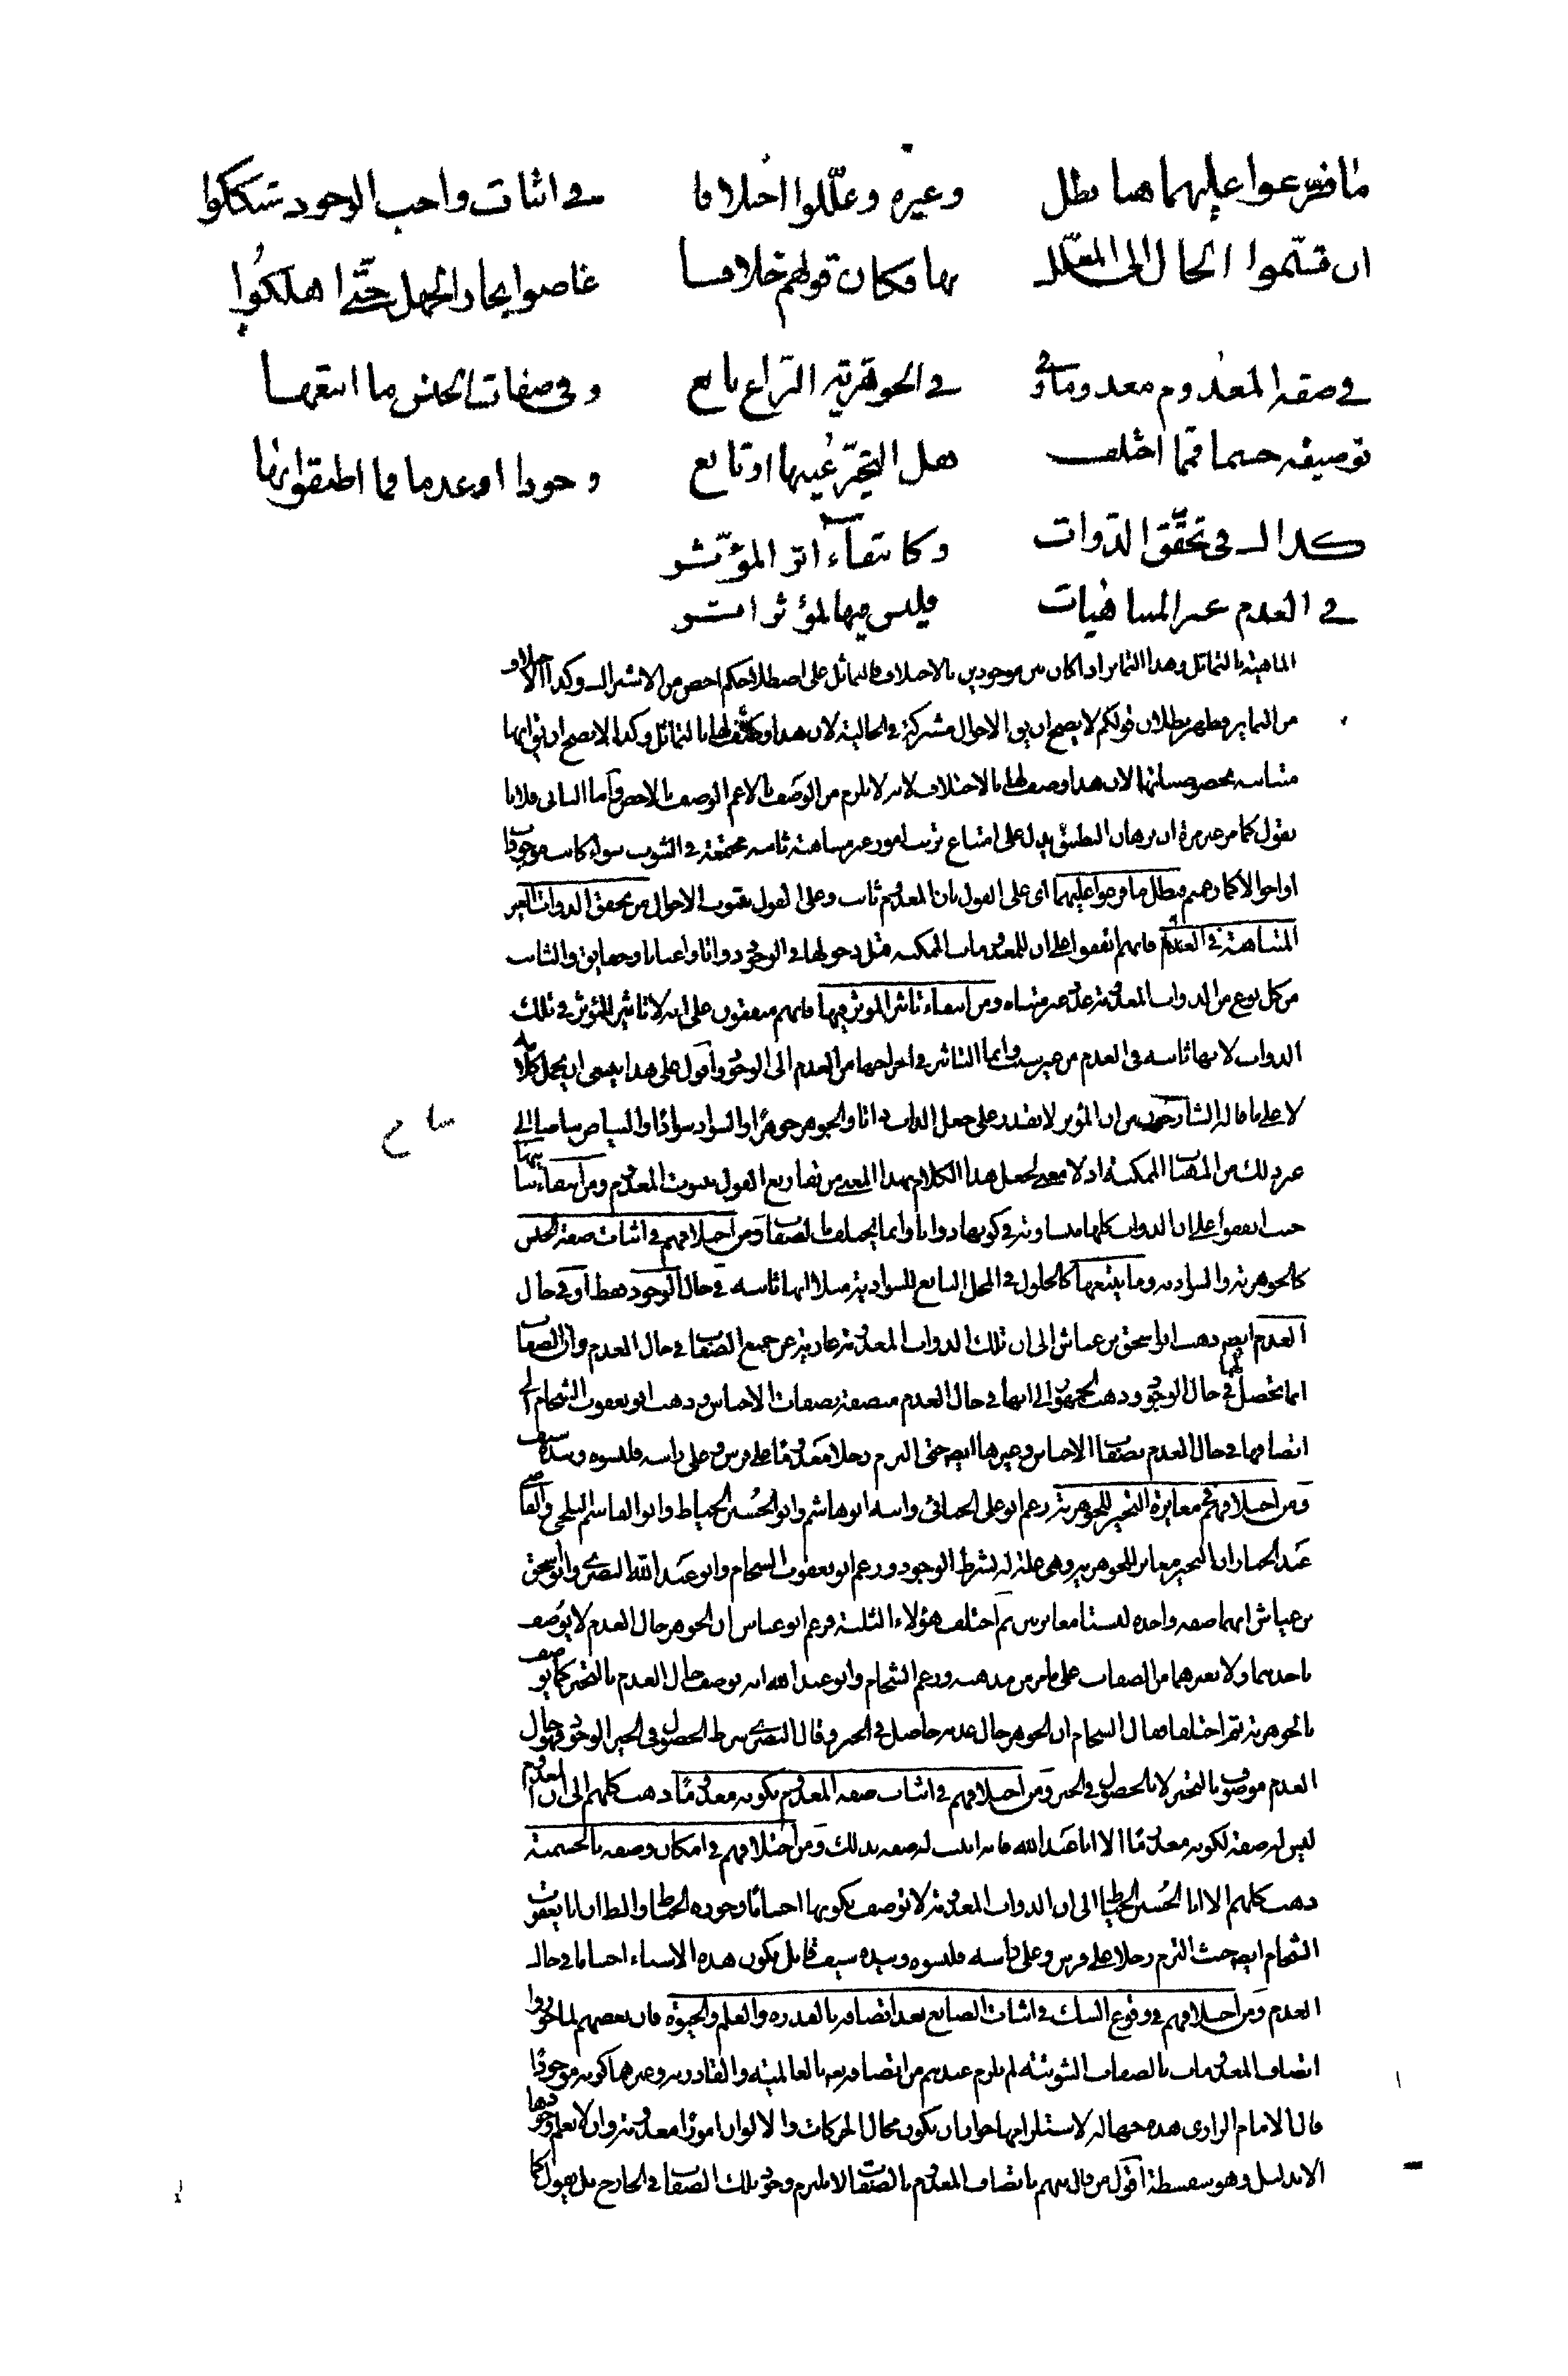 ما فرّعوا عليهما هنا بطل وغيره وعلّلوا اختلافا في اثبات واجب الوجود شككوا
ان قسّموا الحال الى المعلّل بها فكان قولهم خلافا غاصوا بحار الجهل حتّى اهلكوا
في صفة المعدوم معدوما وفي في الجوهرية النزاع باىع وفي صفات الجنس ما اتبعها
توصيفه جسما فيما اختلف هل التحيّز غيرها او تابع وجودا او عدما فما اطبقوا بها
كذاك في تحقّق الذوات وكانتفاء اثر المؤثر
في العدم غير المتناهيات فليس فيها لمؤثر اثر
الماهية بالتماثل وهذا التمايز اذا كان بين موجودين بالاختلاف فالتماثل على اصطلاحكم اخص من الاشتراك وكذا الاختلاف
من التمايز فظهر بطلان قولكم لا يصح ان يق الاحوال مشتركة في الحالية لان هذا وصف لها بالتماثل وكذا لا يصح ان يق انها
متباينة بخصوصياتها لان هذا وصف لها بالاختلاف لانه لا يلزم من الوصف بالاعم الوصف بالاخص واما الثاني فلانا
نقول كما مر غير مرة ان برهان التطبيق يدل على امتناع ترتب امور غير متناهية ثابتة مجتمعة في الثبوت سواء كانت موجودات
او احوالا كما زعمهم فبطل ما فرعوا عليهما اى على القول بان المعدوم ثابت وعلى القول بثبوت الاحوال من تحقق الذوات الغير
المتناهية في العدم فانهم اتفقوا على ان للمعدومات الممكنة قبل دخولها في الوجود ذواتا واعيانا وحقايق والثابت
من كل نوع من الذوات المعدومة عدد غير متناه ومن انتفاء تاثير المؤثر فيها فانهم متفقون على انه لا تاثير للمؤثر في تلك
الذوات لانها ثابتة في العدم من غير سبب وانما التاثير في اخراجها من العدم الى الوجود واقول على هذا ينبغي ان يحمل كلامه
لا على ما قاله الشارحون من ان المؤثر لا يقدر على جعل الذات ذاتا والجوهر جوهرا والسواد سوادا والبياض بياضا الى
غير ذلك من الماهيات الممكنة اذ لا معنى لجعل هذا الكلام بهذا المعنى من تفاريع القول بثبوت المعدوم ومن انتفاء تباينها
حيث اتفقوا على ان الذوات كلها متساوية في كونها ذواتا وانما يختلف بالصفات ومن اختلافهم في اثبات صفة الجنس
كالجوهرية والسوادية وما يتبعها كالحلول في المحل التابع للسوادية مثلا انها ثابتة في حال الوجود فقط او في حال
العدم ايضا ذهب ابو اسحق بن عياش الى ان تلك الذوات المعدومة عارية عن جميع الصفات في حال العدم وان الصفات
انما تحصل لها في حال الوجود وذهب الجمهور الى انها في حال العدم متصفة بصفات الاجناس وذهب ابو يعقوب الشحام الى
اتصافها في حال العدم بصفات الاجناس وغيرها ايضا حتى التزم رجلا معدوما على فرس وعلى راسه قلنسوة وبيده سيف
ومن اختلافهم في مغايرة التحيز للجوهرية زعم ابو على الجبائى وابنه ابو هاشم وابو الحسين الخياط وابو القاسم البلخى والقاضى
عبد الجبار ان التحيز مغاير للجوهرية وهى علة له بشرط الوجود وزعم ابو يعقوب الشحام وابو عبد الله البصرى وابو اسحق
بن عياش انهما صفة واحدة ليستا مغايرتين ثم اختلف هؤلاء الثلثة فزعم ابو عياش ان الجوهر حال العدم لا يوصف
باحديهما ولا بغيرهما من الصفات على ما مر من مذهبه وزعم الشحام وابو عبد الله انه يوصف حال العدم بالتحيز كما يوصف
بالجوهرية ثم اختلفا فقال الشحام ان الجوهر حال عدمه حاصل في الحيز وقال البصرى شرط الحصول في الحيز الوجود فهو حال
العدم موصوف بالتحيز لا بالحصول في الحيز ومن اختلافهم في اثبات صفة المعدوم بكونه معدوما ذهب كلهم الى ان المعدوم
ليس له صفة لكونه معدوما الا ابا عبد الله فانه اثبت له صفة بذلك ومن اختلافهم في امكان وصفه بالجسمية
ذهب كلهم الا ابا الحسين الخياط الى ان الذوات المعدومة لا توصف بكونها اجساما وجوزه الخياط والظ ان ابا يعقوب
الشحام ايضا حيث التزم رجلا على فرس وعلى راسه قلنسوة وبيده سيف قايل بكون هذه الاشياء اجساما في حال
العدم ومن اختلافهم في وقوع الشك في اثبات الصانع بعد اتصافه بالقدرة والعلم والحيوة فان بعضهم لما جوزوا
اتصاف المعدومات بالصفات الثبوتية لم يلزم عندهم من اتصافه تعالى بالعالمية والقادرية وغيرهما كونه موجودا
قال الامام الرازى هذه جهالة لاستلزامها جواز ان يكون محال الحركات والالوان امورا معدومة وان لا يعلم وجودها
الا بدليل وهو سفسطة اقول من قال منهم باتصاف المعدوم بالصفات لا يلزم وجود تلك الصفات في الخارج بل يقول كما